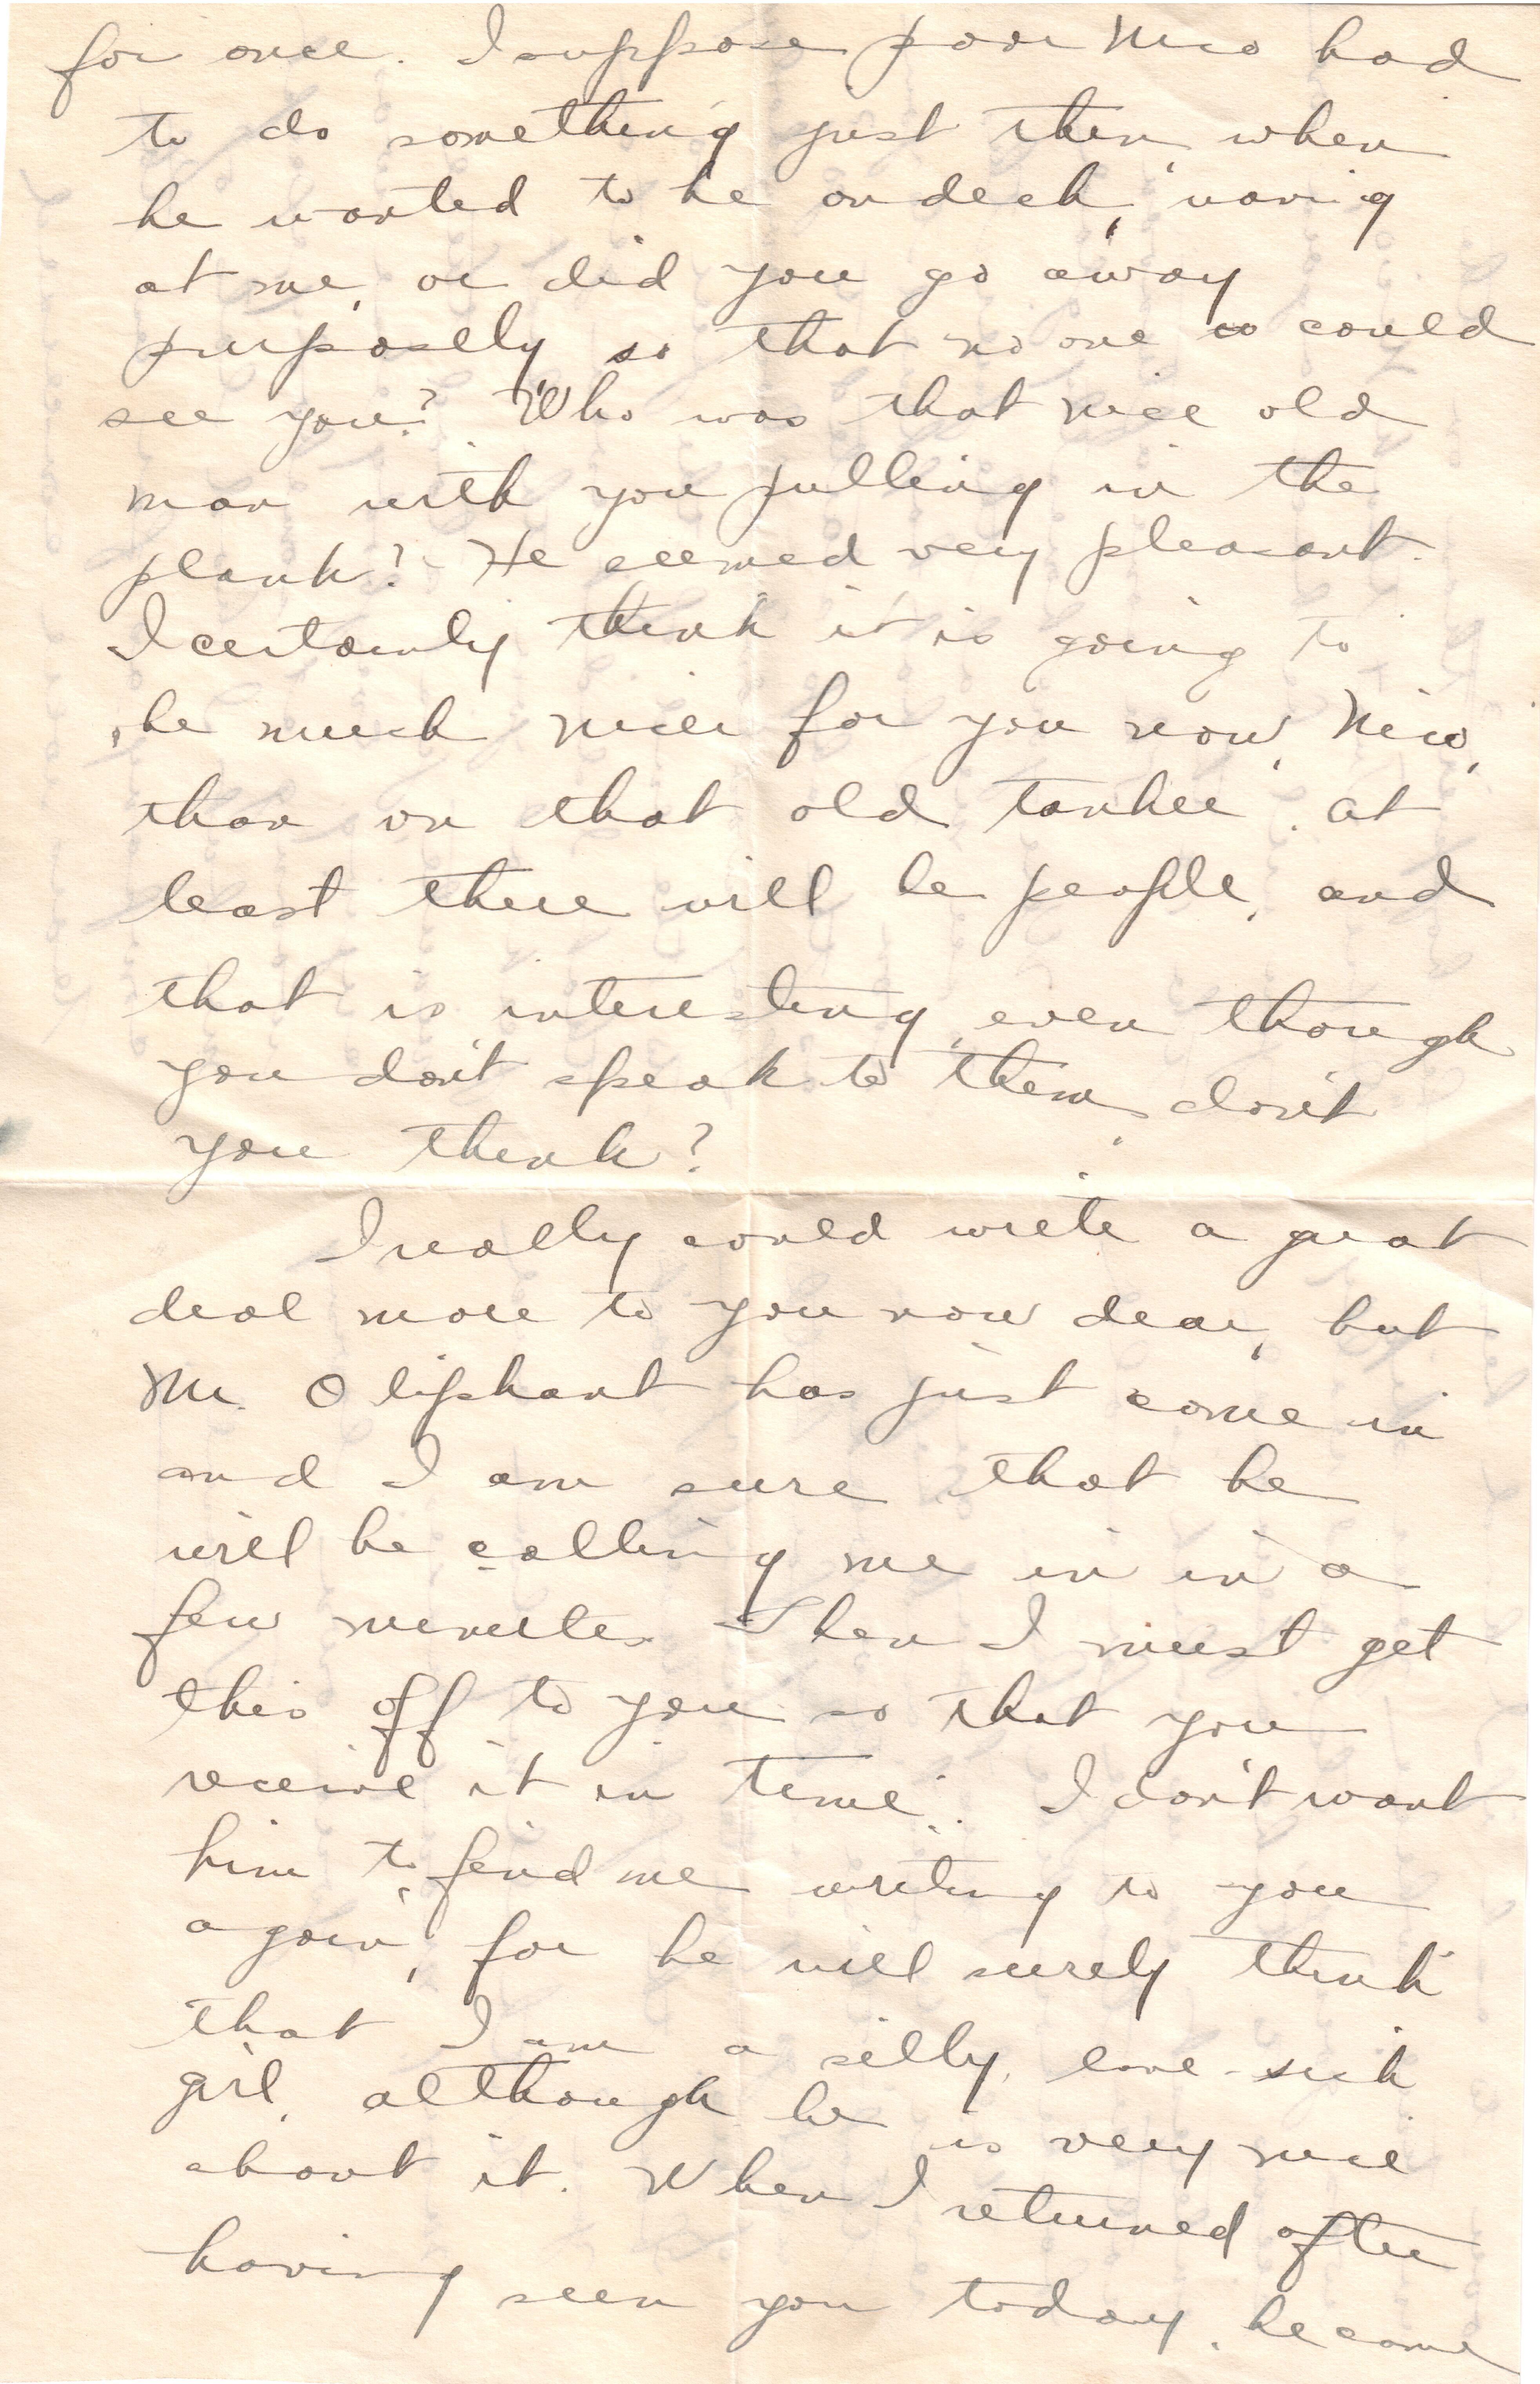 for once. I suppose poor Nico had
to do something just then, when
he wanted to be on deck, waving
at me, or did you go away
purposely so that no one co could
see you? Who was that nice old
man with you pulling in the
plank? He seemed very pleasant.
I certainly think it is going to
be much nicer for you now, Nico,
than on that old tanker. at
least there will be people, and
that is interesting, even though
you don't speak to them, don't
you think?
I really could write a great
deal more to you now dear, but
Mr. Oliphant has just come in
and I am sure that he
will be calling me in in a
few minutes. Then I must get
this off to you so that you
receive it in time. I don't want
him to find me writing to you
again, for he will surely think
that I am a silly, love-sick
girl, although he is very nice
about it. When I returned after
having seen you today, he came